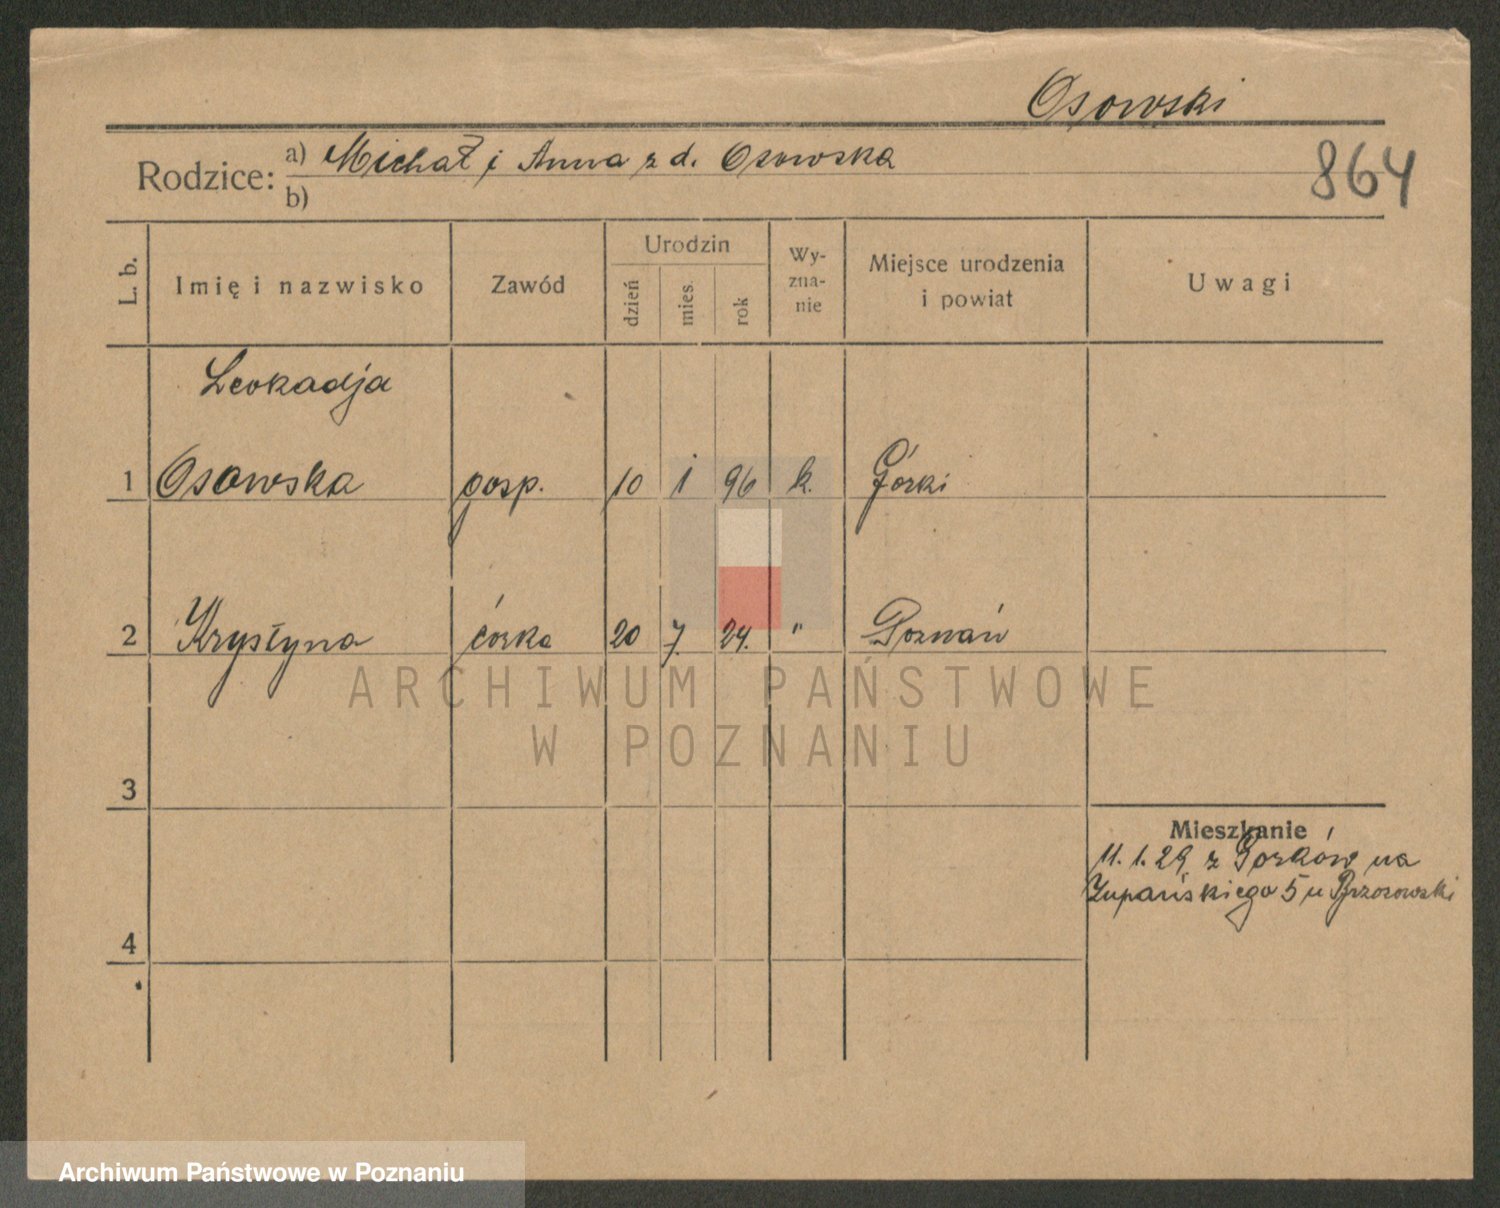 Osowski
Rodzice: a) Michał i Anna z d. Osowska
b)
864
L. b.
Imię i nazwisko
Zawód
Urodzin
dzień
mies.
rok
Wy-
zna-
nie
Miejsce urodzenia
i powiat
Uwagi
Leokadja
1 Osowska gosp. 10 1 96 k. Górki
2 Krystyna córka 20 7. 24. " Poznań
ARCHIWUM PAŃSTWOWE
W POZNANIU
3
Mieszkanie
11. 1. 29 z Gorków na
Zupańskiego 5 u Brzozowski
4
Archiwum Państwowe w Poznaniu